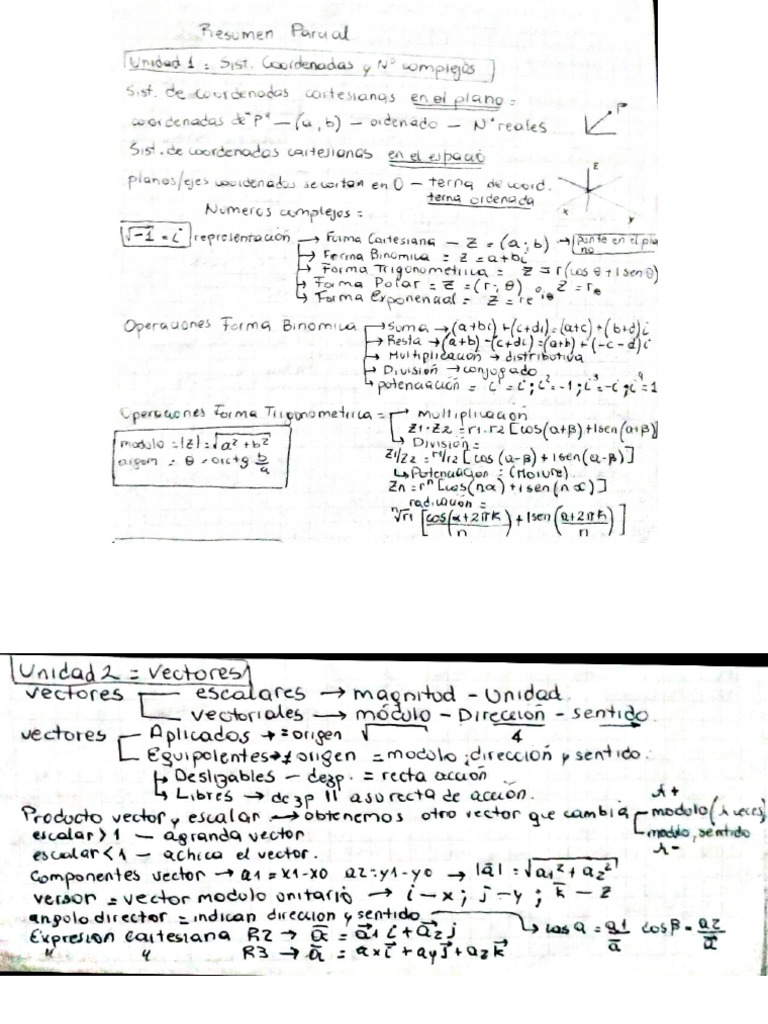 Resumen Parcial
Unidad 1: Sist. Coordenadas y N° complejos
Sist. de coordenadas cartesianas en el plano:
coordenadas de "P" - (a, b) - ordenado - N° reales
P
Sist. de coordenadas cartesianas en el espacio
planos/ejes coordenados se cortan en O - terna de coord.
terna ordenada
x y
Numeros complejos:
√-1 = i representación → Forma Cartesiana - Z = (a; b) → Punto en el plano
→ Forma Binomica = z = a+bi
→ Forma Trigonometrica = z = r(cos θ + i sen θ)
→ Forma Polar = z = (r; θ) o z = rθ
→ Forma Exponencial = z = re^iθ
Operaciones Forma Binomica → Suma → (a+bi)+(c+di)=(a+c)+(b+d)i
→ Resta → (a+b)-(c+di)=(a+b)+(-c-d)i
→ Multiplicación → distributiva
→ División → conjugado
→ potenciación = i¹=i; i²=-1; i³=-i; i⁴=1
Operaciones Forma Trigonometrica = → Multiplicación
Z1.Z2 = r1.r2 [cos(α+β)+i sen(α+β)]
modulo = |z| = √a²+b²
→ División =
argum = θ = arctg b/a
Z1/Z2 = r1/r2 [cos (α-β) + i sen(α-β)]
→ Potenciación = (Moivre)
Zn = rⁿ [cos(nα) + i sen(nα)]
radicación =
ⁿ√r1 [cos(α+2πk)/n + i sen(α+2πk)/n]
Unidad 2 = Vectores
vectores escalares → magnitud - Unidad.
vectoriales → módulo - Dirección - sentido.
vectores Aplicados → = origen
Equipolentes → ≠ origen = modulo; dirección y sentido.
→ Deslizables - desp. = recta acción
→ Libres → desp || a su recta de acción.
Producto vector y escalar → obtenemos otro vector que cambia
λ+
modulo (λ veces)
modulo, sentido
λ-
escalar > 1 - agranda vector
escalar < 1 - achica el vector.
Componentes vector → a1 = x1-x0 a2 = y1-y0 → |a| = √a1²+a2²
versor = vector modulo unitario → i - x; j - y; k - z
angulo director = indican direccion y sentido → cos α = a1/a cos β = a2/a
Expresion cartesiana R2 → a = a1 i + a2 j
" " R3 → a = ax i + ay j + az k